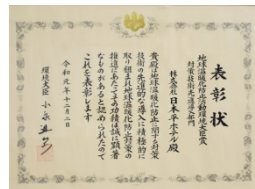 表彰状
地球温暖化防止活動環境大臣賞
対策技術先進導入部門
株式会社 日本平ホテル殿
貴殿は地球温暖化防止に関する対策
技術の先進的な導入に積極的に
取り組まれ地球温暖化防止対策の
推進にあたってその功績は誠に顕著
なものがあると認められたので
これを表彰します
令和元年十二月二日
環境大臣